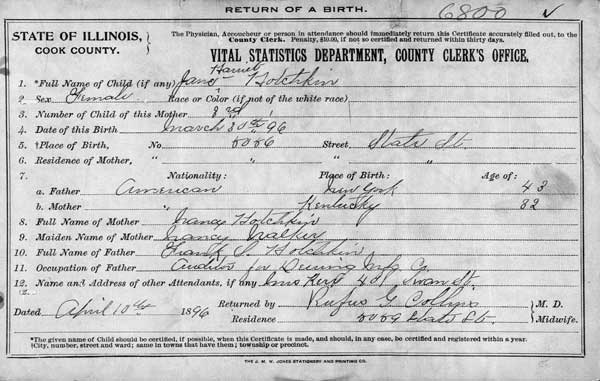 RETURN OF A BIRTH.
6800 ✓
STATE OF ILLINOIS,
COOK COUNTY.
The Physician, Accoucheur or person in attendance should immediately return this Certificate accurately filled out, to the
County Clerk. Penalty, $10.00, if not so certified and returned within thirty days.
VITAL STATISTICS DEPARTMENT, COUNTY CLERK'S OFFICE.
Harriet
1. *Full Name of Child (if any) Jane Hotchkin
2. Sex Female Race or Color (if not of the white race)
3. Number of Child of this Mother 3rd
4. Date of this Birth March 30th 96
5. †Place of Birth, No. 5059 Street, State St.
6. Residence of Mother, " " " "
7. Nationality: Place of Birth: Age of:
a. Father American New York 43
b. Mother " Kentucky 32
8. Full Name of Mother Nancy Hotchkin
9. Maiden Name of Mother Nancy Walker
10. Full Name of Father Frank S. Hotchkin
11. Occupation of Father Auditor for Deering Mfg. Co.
12. Name and Address of other Attendants, if any Mrs 401 Swan St.
Dated April 10th 1896 Returned by Rufus G. Collins M. D.
Residence 5059 State St. Midwife.
*The given name of Child should be certified, if possible, when this Certificate is made, and should, in any case, be certified and registered within a year.
†City, number, street and ward; same in towns that have them; township or precinct.
THE J. M. W. JONES STATIONERY AND PRINTING CO.